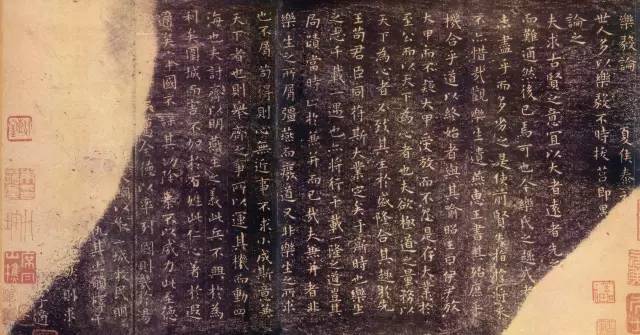 樂毅論 夏侯泰
世人多以樂毅不時拔莒即墨
論之
夫求古賢之意宜以大者遠者先
而難通然後已焉可也今樂氏之趣或者
未盡乎而多劣之是使前賢失指於將來
不亦惜哉觀樂生遺燕惠王書其殆庶
機合乎道以終始者與其喻昭王曰伊尹放
大甲而不疑大甲受放而不怨是存大業於
至公而以天下為心者也夫欲極道之量務以
天下為心者必致其主於盛隆合其趣於先
王苟君臣同符斯大業定矣于斯時也樂生
之志千載一遇也亦將行千載一隆之道豈其
局蹟當時止於兼并而已哉夫兼并者非
樂生之所屑彊燕而廢道又非樂生之所求
也不屑苟得則心無近事不求小成斯意兼
天下者也則舉齊之事所以運其機而動四
海也夫討齊以明燕主之義此兵不興於為
利矣圍城而害不加於百姓此仁心著於遐
邇矣舉國不謀其功除暴不以威力此至德
邁至德以率列國則幾於湯
以縱二城收民明